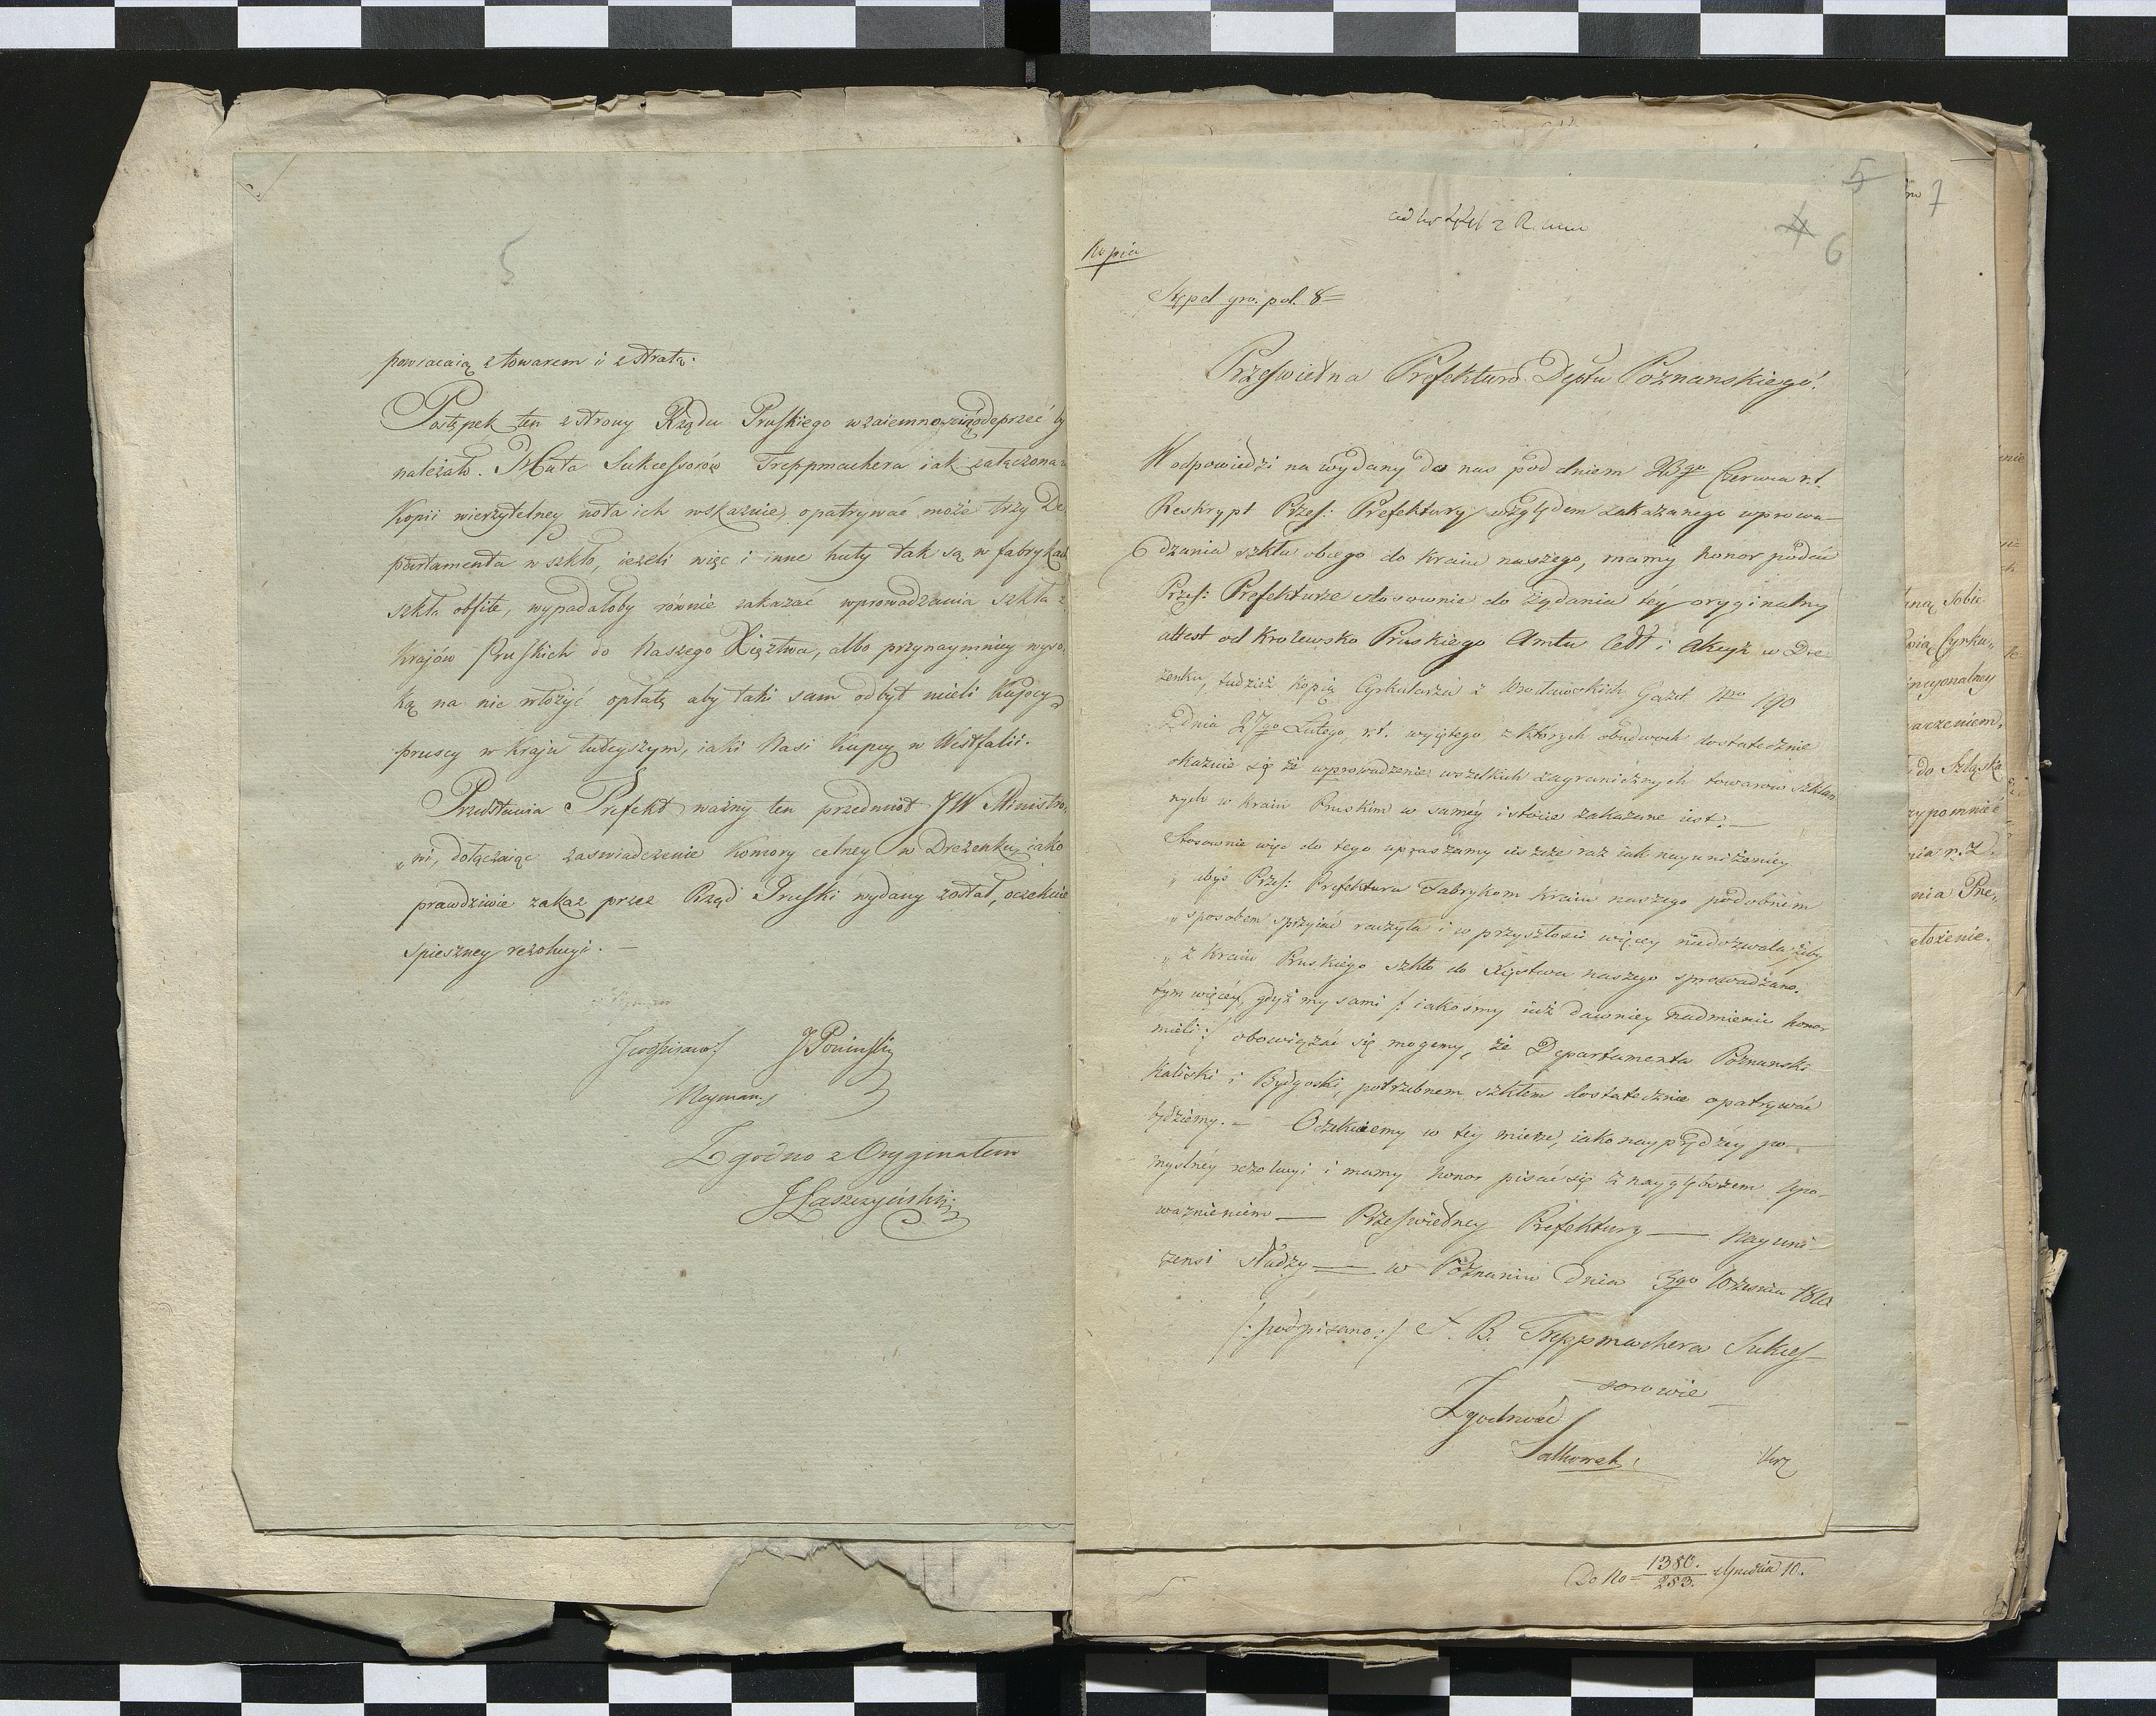 powracaią z towarem i z stratą.
Postępek ten z strony Rządu Pruskiego wzaiemnością odeprzeć by
należało. Huta Sukcessorów Treppmachera iak załączona w
Kopii wierzytelney nota ich wskazuie, opatrywać może trzy De
partamenta w szkło, ieżeli więc i inne huty tak są w fabrykach
szkła obfite, wypadałoby równie zakazać wprowadzania szkła z
Krajów Pruskich do Naszego Xięztwa, albo przynaymniey wyso
ką na nie włożyć opłatę aby taki sam odbyt mieli Kupcy
pruscy w Kraju tuteyszym, iaki Nasi Kupcy w Westfalii.
Przedstawia Prefekt ważny ten przedmiot JW Ministro
„wi, dołączaiąc zaswiadczenie Komory celney w Drezenku, iako
prawdziwie zakaz przez Rząd Pruski wydany został, oczekuie
spieszney rezolucyi. —
J Poninski
Neyman
Zgodno z Oryginałem
J Łaszczyński
5
5
4
6
7
Kopia
Stępel gro. pol. 8=
Prześwietna Prefekturo Deptu Poznanskiego!
W odpowiedzi na wydany do nas pod dniem 23go Czerwca r.t.
Reskrypt Przes: Prefektury względem zakazanego wprowa-
dzania szkła obcego do Kraiu naszego, mamy honor podać
Przes: Prefekturze stosownie do żądania téy oryginalny
attest od Krolewsko Pruskiego Amtu Celł i Akcyz w Dre-
zenku, tudzież kopią Cyrkularza z Wrocławskich Gazet Nro 190
z dnia 27go Lutego, r.t. wyiętego, z których obudwoch dostatecznie
okazuie się że wprowadzenie wszelkich zagranicznych towarow szklan
nych w Kraiu Pruskim w saméy istocie zakazane iest. —
Stosownie więc do tego upraszamy ieszcze raz iak nayuniżeniey
„ abyś Przes: Prefektura Fabrykom Kraiu naszego podobnim
„ sposobem sprzyiać raczyła i w przyszłosci więcey niedozwalała, żeby
„ z Kraiu Pruskiego szkło do Xięstwa naszego sprowadzano.
tym więcéy, gdyż my sami /: iakośmy iuż dawniey nadmienić honor
mieli :/ obowiązać się mogemy, że Departamenta Poznanski
Kaliski i Bydgoski, potrzebnem szkłem dostatecznie opatrywać
będziemy. — Oczekuiemy w tey mierze, iako nayprędzéy po-
myslnéy rezolucyi i mamy honor pisać się z naygłębszem upo-
ważnieniem — Prześwietney Prefektury — Nayuni-
żensi Słudzy — w Poznaniu dnia 3go Września 1810
/: podpisano :/ T. B. Treppmachera Sukces-
sorowie
Zgodność
Sałkowski
Do No = 1380./283. z Grudnia 10.